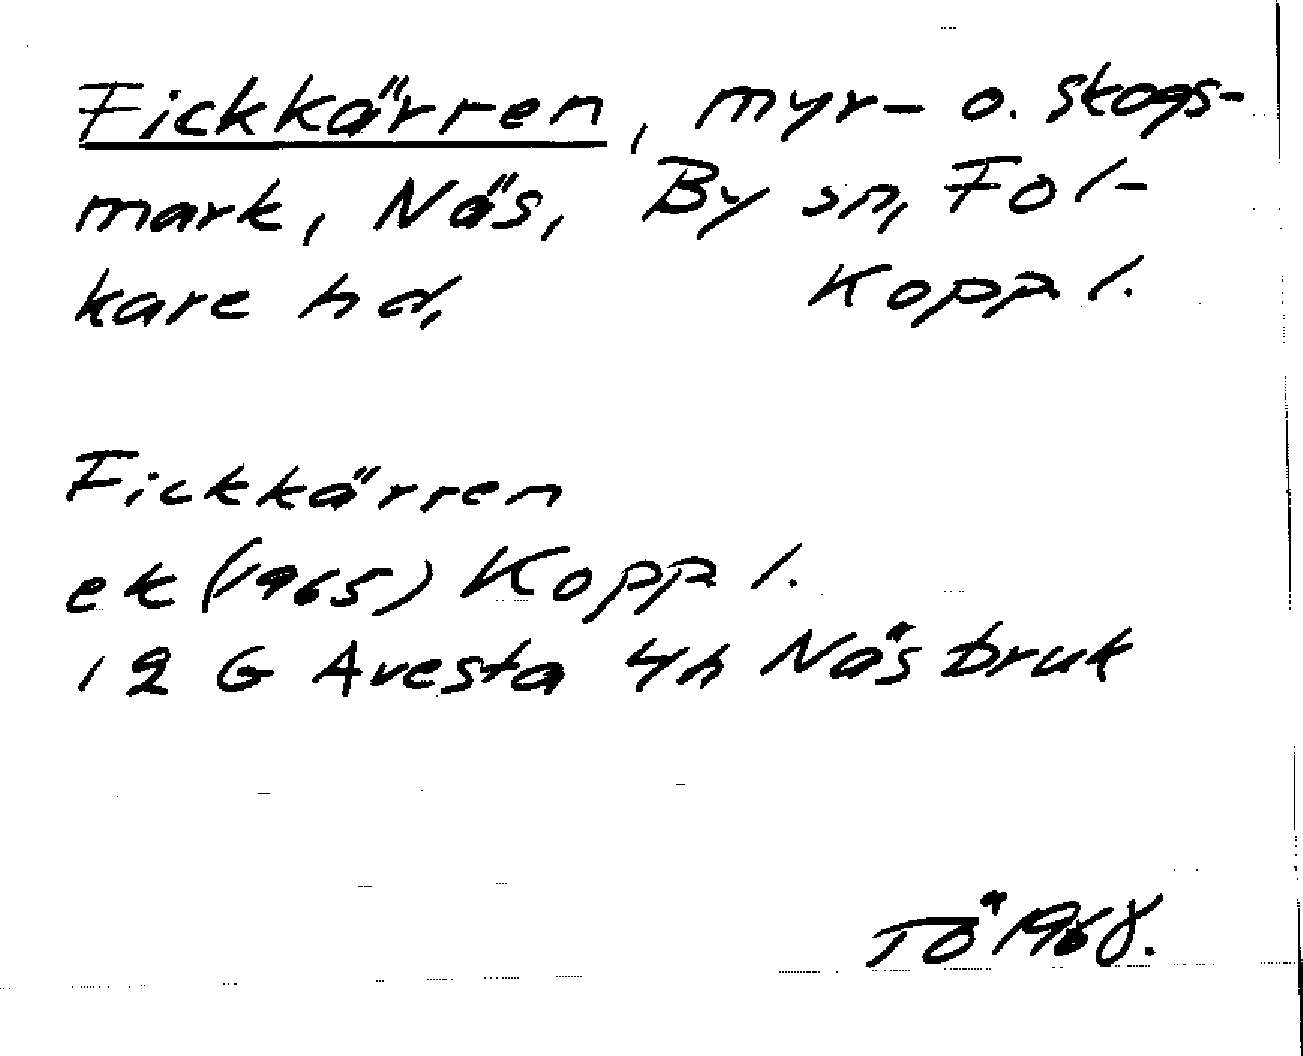 Fickkärren, myr- o. skogs-
mark, Näs, By sn, Fol-
kare hd, Kopp l.
Fickkärren
ek (1965) Kopp l.
12 G Avesta 4h Näs bruk
TÖ 1968.